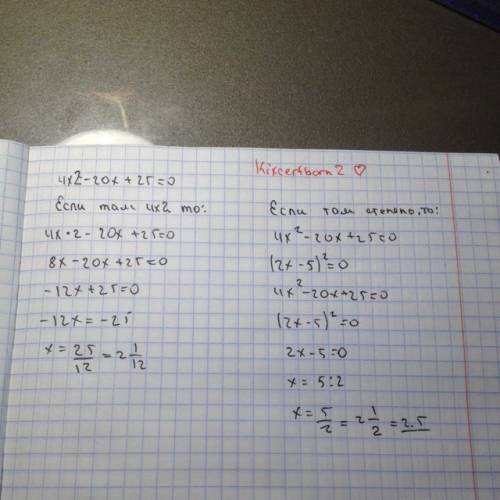 Kixcerkborn 2 ♡
4x2-20x+25=0
Если там 4x2 то:
4x·2-20x+25=0
8x-20x+25=0
-12x+25=0
-12x=-25
x=25/12=2 1/12
Если там степень,то:
4x²-20x+25=0
(2x-5)²=0
4x²-20x+25=0
(2x-5)²=0
2x-5=0
x=5:2
x=5/2=2 1/2=2.5